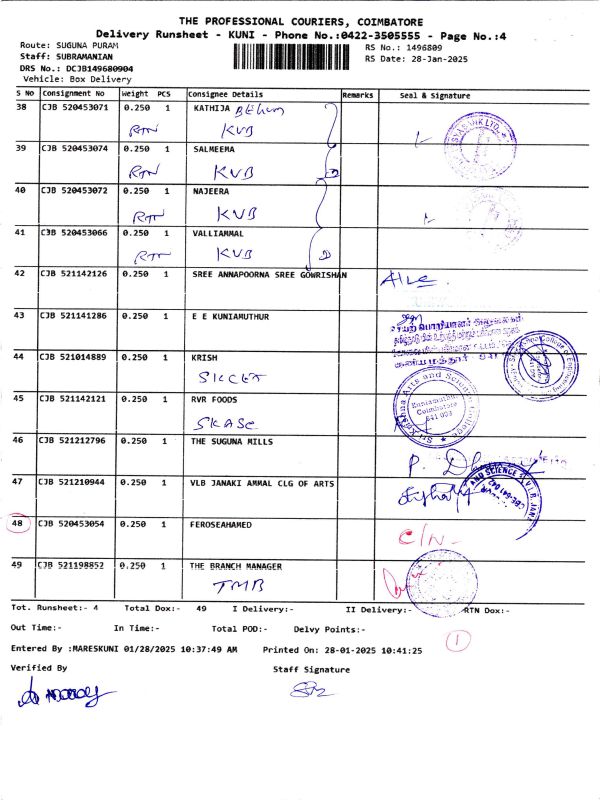 THE PROFESSIONAL COURIERS, COIMBATORE
Delivery Runsheet - KUNI - Phone No.:0422-3505555 - Page No.:4
Route: SUGUNA PURAM
RS No.: 1496809
Staff: SUBRAMANIAN
RS Date: 28-Jan-2025
DRS No.: DCJB149680904
Vehicle: Box Delivery
S No Consignment No Weight PCS Consignee Details Remarks Seal & Signature
38 CJB 520453071 0.250 1 KATHIJA BEGUM
RTN KVB
39 CJB 520453074 0.250 1 SALMEEMA
RTN KVB
40 CJB 520453072 0.250 1 NAJEERA
RTN KVB
41 CJB 520453066 0.250 1 VALLIAMMAL
RTN KVB
42 CJB 521142126 0.250 1 SREE ANNAPOORNA SREE GOWRISHAN
43 CJB 521141286 0.250 1 E E KUNIAMUTHUR
44 CJB 521014889 0.250 1 KRISH
SKCET
45 CJB 521142121 0.250 1 RVR FOODS
SKASC
Sri Krishna Arts and Science College
Kuniamuthur
Coimbatore
641 008
46 CJB 521212796 0.250 1 THE SUGUNA MILLS
47 CJB 521210944 0.250 1 VLB JANAKI AMMAL CLG OF ARTS
48 CJB 520453054 0.250 1 FEROSEAHAMED
C/N-
49 CJB 521198852 0.250 1 THE BRANCH MANAGER
TMB
Tot. Runsheet:- 4 Total Dox:- 49 I Delivery:- II Delivery:- RTN Dox:-
Out Time:- In Time:- Total POD:- Delvy Points:-
1
Entered By :MARESKUNI 01/28/2025 10:37:49 AM Printed On: 28-01-2025 10:41:25
Verified By Staff Signature